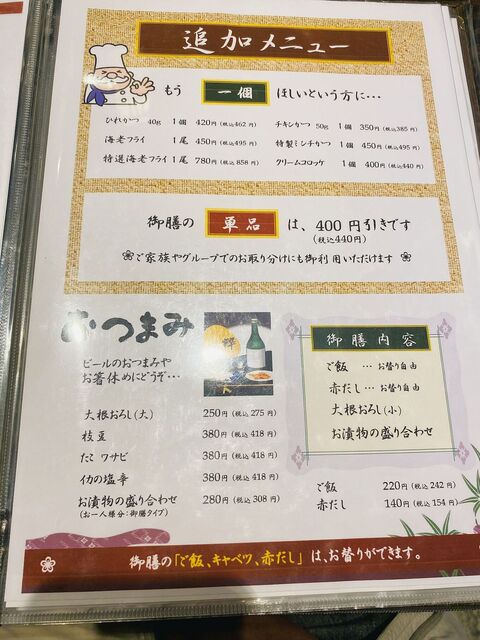 追加メニュー
もう 一個 ほしいという方に…
ひれかつ 40g 1個 420円(税込462円)
チキンかつ 50g 1個 350円(税込385円)
海老フライ 1尾 450円(税込495円)
特製ミンチかつ 1個 450円(税込495円)
特選海老フライ 1尾 780円(税込858円)
クリームコロッケ 1個 400円(税込440円)
御膳の 単品 は、400円引きです
(税込440円)
❀ご家族やグループでのお取り分けにも御利用いただけます ❀
おつまみ
ビールのおつまみや
お箸休めにどうぞ…
大根おろし(大) 250円(税込275円)
枝豆 380円(税込418円)
たこワサビ 380円(税込418円)
イカの塩辛 380円(税込418円)
お漬物の盛り合わせ 280円(税込308円)
(お一人様分:御膳タイプ)
御膳内容
ご飯 … お替り自由
赤だし … お替り自由
大根おろし(小)
お漬物の盛り合わせ
ご飯 220円(税込242円)
赤だし 140円(税込154円)
御膳の「ご飯、キャベツ、赤だし」は、お替りができます。